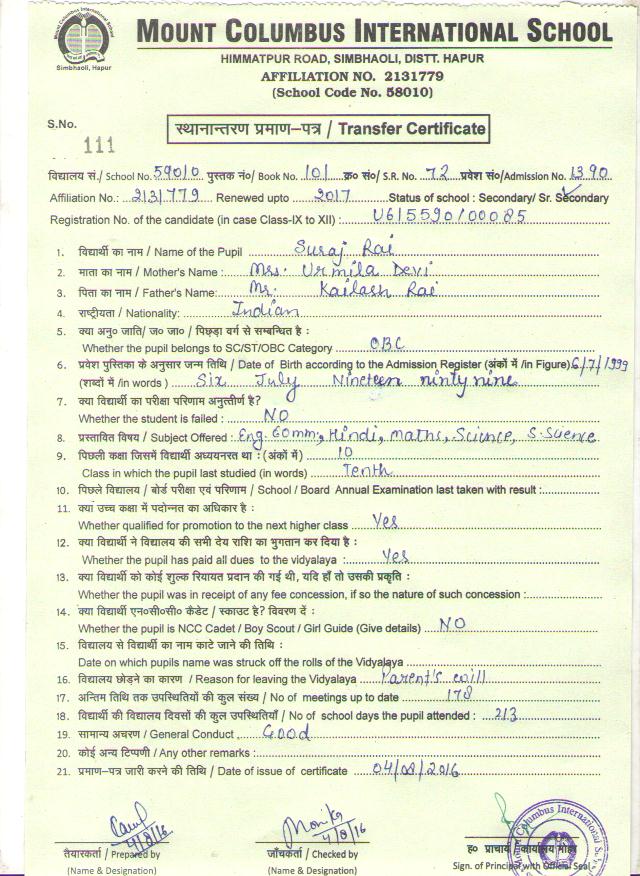 Mount Columbus International School
Simbhaoli, Hapur
MOUNT COLUMBUS INTERNATIONAL SCHOOL
HIMMATPUR ROAD, SIMBHAOLI, DISTT. HAPUR
AFFILIATION NO. 2131779
(School Code No. 58010)
S.No.
111
स्थानान्तरण प्रमाण–पत्र / Transfer Certificate
विद्यालय सं./ School No. 59010 पुस्तक नं०/ Book No. 101 क्र० सं०/ S.R. No. 72 प्रवेश सं०/Admission No. 1390
Affiliation No.: 2131779 Renewed upto 2017 Status of school : Secondary/ Sr. Secondary
Registration No. of the candidate (in case Class-IX to XII) : U615590/00085
1. विद्यार्थी का नाम / Name of the Pupil Suraj Rai
2. माता का नाम / Mother's Name : Mrs. Urmila Devi
3. पिता का नाम / Father's Name: Mr. Kailash Rai
4. राष्ट्रीयता / Nationality: Indian
5. क्या अनु० जाति/ ज० जा० / पिछड़ा वर्ग से सम्बन्धित है :
Whether the pupil belongs to SC/ST/OBC Category OBC
6. प्रवेश पुस्तिका के अनुसार जन्म तिथि / Date of Birth according to the Admission Register (अंकों में /in Figure) 6/7/1999
(शब्दों में /in words ) Six July Nineteen ninty nine
7. क्या विद्यार्थी का परीक्षा परिणाम अनुत्तीर्ण है?
Whether the student is failed : NO
8. प्रस्तावित विषय / Subject Offered : Eng. Comm, Hindi, maths, Science, S. Science
9. पिछली कक्षा जिसमें विद्यार्थी अध्ययनरत था : (अंकों में) 10
Class in which the pupil last studied (in words) Tenth
10. पिछले विद्यालय / बोर्ड परीक्षा एवं परिणाम / School / Board Annual Examination last taken with result :
11. क्या उच्च कक्षा में पदोन्नत का अधिकार है :
Whether qualified for promotion to the next higher class Yes
12. क्या विद्यार्थी ने विद्यालय की सभी देय राशि का भुगतान कर दिया है :
Whether the pupil has paid all dues to the vidyalaya : Yes
13. क्या विद्यार्थी को कोई शुल्क रियायत प्रदान की गई थी, यदि हाँ तो उसकी प्रकृति :
Whether the pupil was in receipt of any fee concession, if so the nature of such concession :
14. क्या विद्यार्थी एन०सी०सी० कैडेट / स्काउट है? विवरण दें :
Whether the pupil is NCC Cadet / Boy Scout / Girl Guide (Give details) NO
15. विद्यालय से विद्यार्थी का नाम काटे जाने की तिथि :
Date on which pupils name was struck off the rolls of the Vidyalaya
16. विद्यालय छोड़ने का कारण / Reason for leaving the Vidyalaya Parent's will
17. अन्तिम तिथि तक उपस्थितियों की कुल संख्या / No of meetings up to date 178
18. विद्यार्थी की विद्यालय दिवसों की कुल उपस्थितियाँ / No of school days the pupil attended : 213
19. सामान्य अचरण / General Conduct Good
20. कोई अन्य टिप्पणी / Any other remarks :
21. प्रमाण–पत्र जारी करने की तिथि / Date of issue of certificate 04/08/2016
4/8/16
Monika
4/8/16
तैयारकर्ता / Prepared by
(Name & Designation)
जाँचकर्ता / Checked by
(Name & Designation)
ह० प्राचार्य
Sign. of Principal with Official Seal
Mount Columbus International